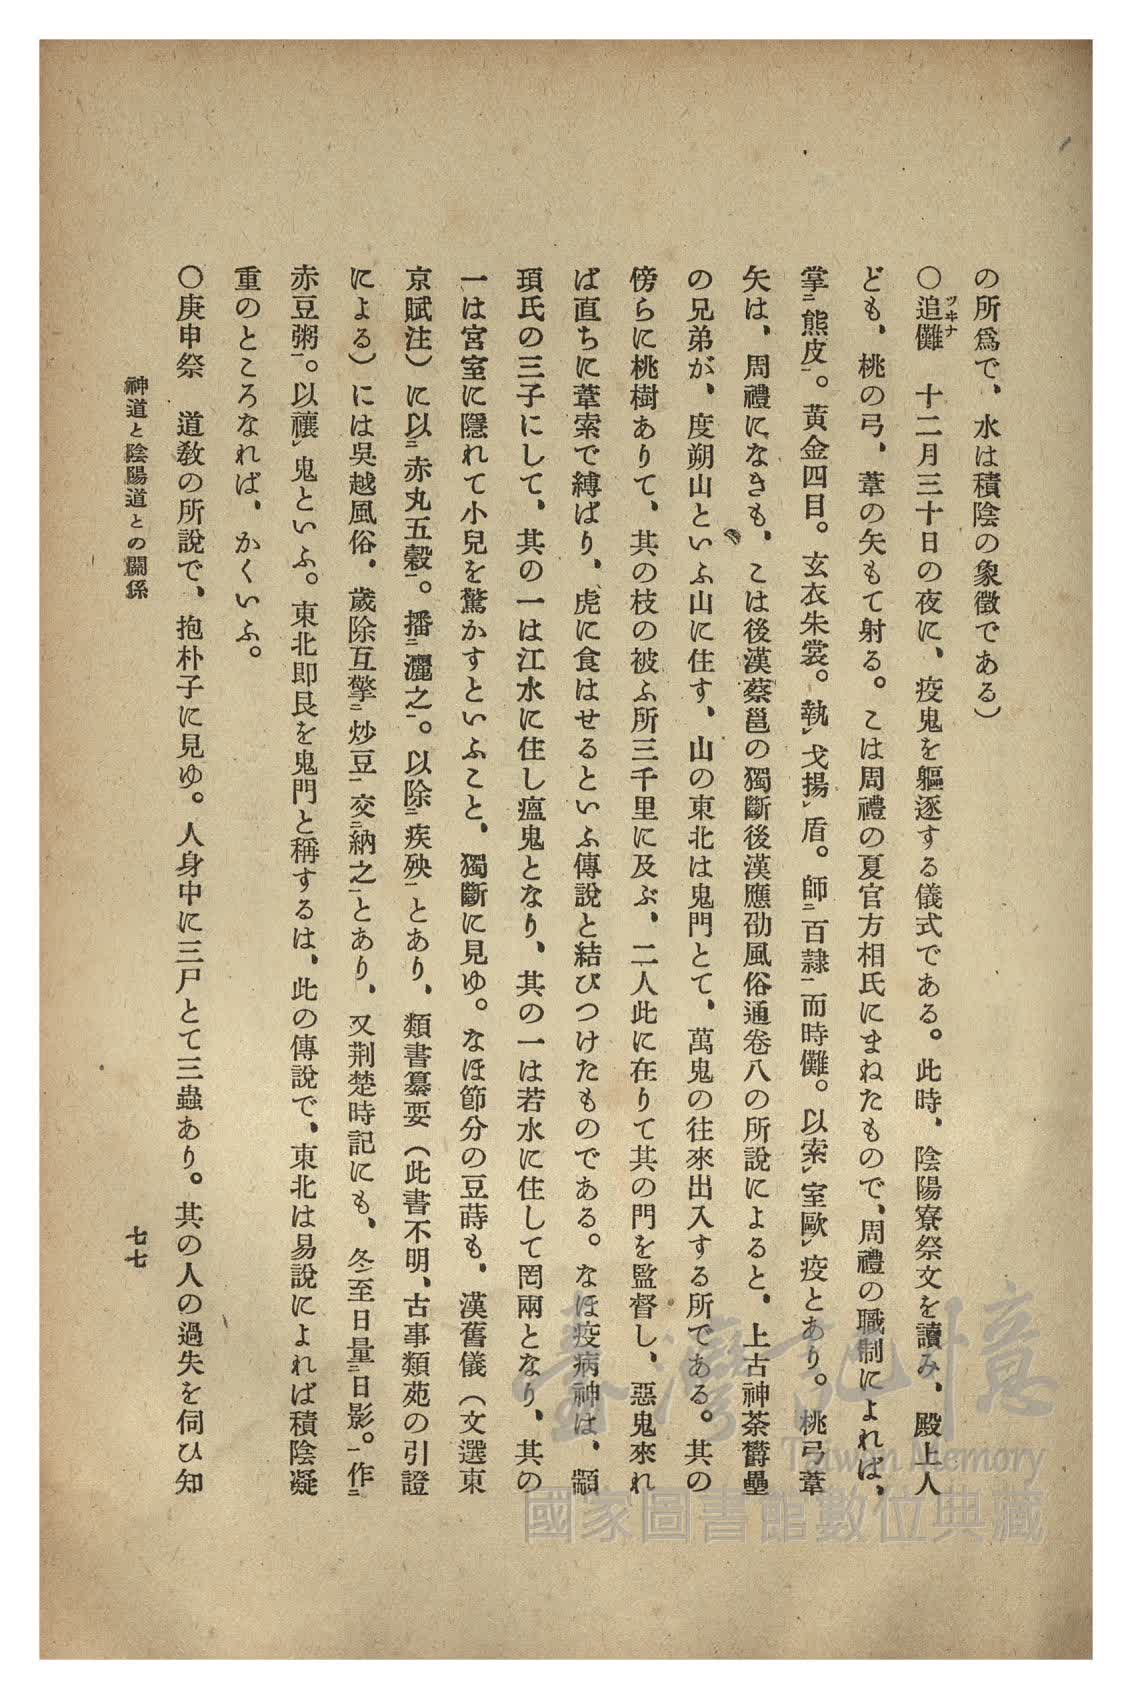 の所爲で、水は積陰の象徴である）
〇追儺　十二月三十日の夜に、疫鬼を軀逐する儀式である。此時、陰陽寮祭文を讀み、殿上人
ツヰナ
ども、桃の弓、葦の矢もて射る。こは周禮の夏官方相氏にまねたもので、周禮の職制によれば、
掌㆓熊皮㆒。黄金四目。玄衣朱裳。執㆑戈揚㆑盾。師㆓百隷㆒而時儺。以索㆑室歐㆑疫とあり。桃弓葦
矢は、周禮になきも、こは後漢蔡邕の獨斷後漢應劭風俗通卷八の所説によると、上古神荼欝壘
の兄弟が、度朔山といふ山に住す、山の東北は鬼門とて、萬鬼の往來出入する所である。其の
傍らに桃樹ありて、其の枝の被ふ所三千里に及ぶ、二人此に在りて其の門を監督し、惡鬼來れ
ば直ちに葦索で縛ばり、虎に食はせるといふ傳説と結びつけたものである。なほ疫病神は、顓
頊氏の三子にして、其の一は江水に住し瘟鬼となり、其の一は若水に住して罔兩となり、其の
一は宮室に隱れて小兒を驚かすといふこと、獨斷に見ゆ。なほ節分の豆蒔も、漢舊儀（文選東
京賦注）に以㆓赤丸五穀㆒。播㆓灑之㆒。以除㆓疾殃㆒とあり、類書纂要（此書不明、古事類苑の引證
による）には吳越風俗、歲除互擎㆓炒豆㆒交㆓納之㆒とあり、又荆楚時記にも、冬至日量㆓日影。㆒作㆓
赤豆粥㆒。以禳㆑鬼といふ。東北即艮を鬼門と稱するは、此の傳說で、東北は易說によれば積陰凝
重のところなれば、かくいふ。
〇庚申祭　道敎の所說で、抱朴子に見ゆ。人身中に三尸とて三蟲あり。其の人の過失を伺ひ知
神道と陰陽道との關係
七七
臺灣記憶
Taiwan Memory
國家圖書館數位典藏